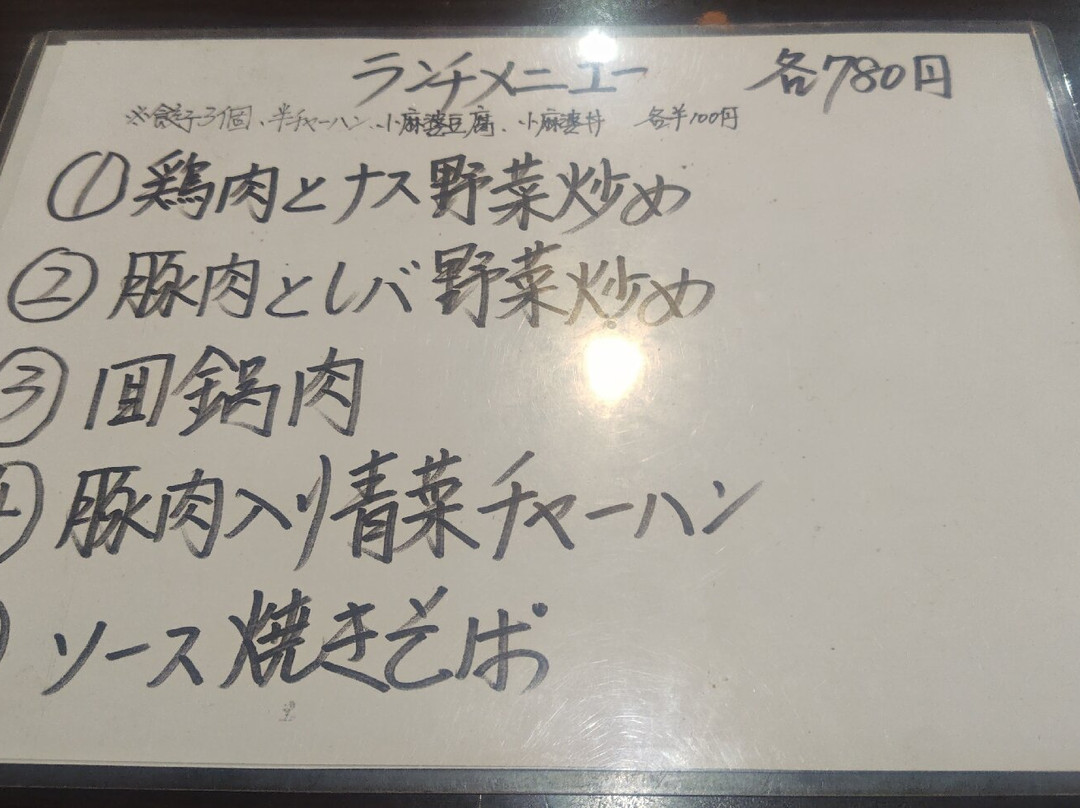 ランチメニュー 各780円
※餃子3個、半チャーハン、小麻婆豆腐、小麻婆丼 各半100円
① 鶏肉とナス野菜炒め
② 豚肉とレバ野菜炒め
③ 回鍋肉
④ 豚肉入り青菜チャーハン
ソース焼きそば